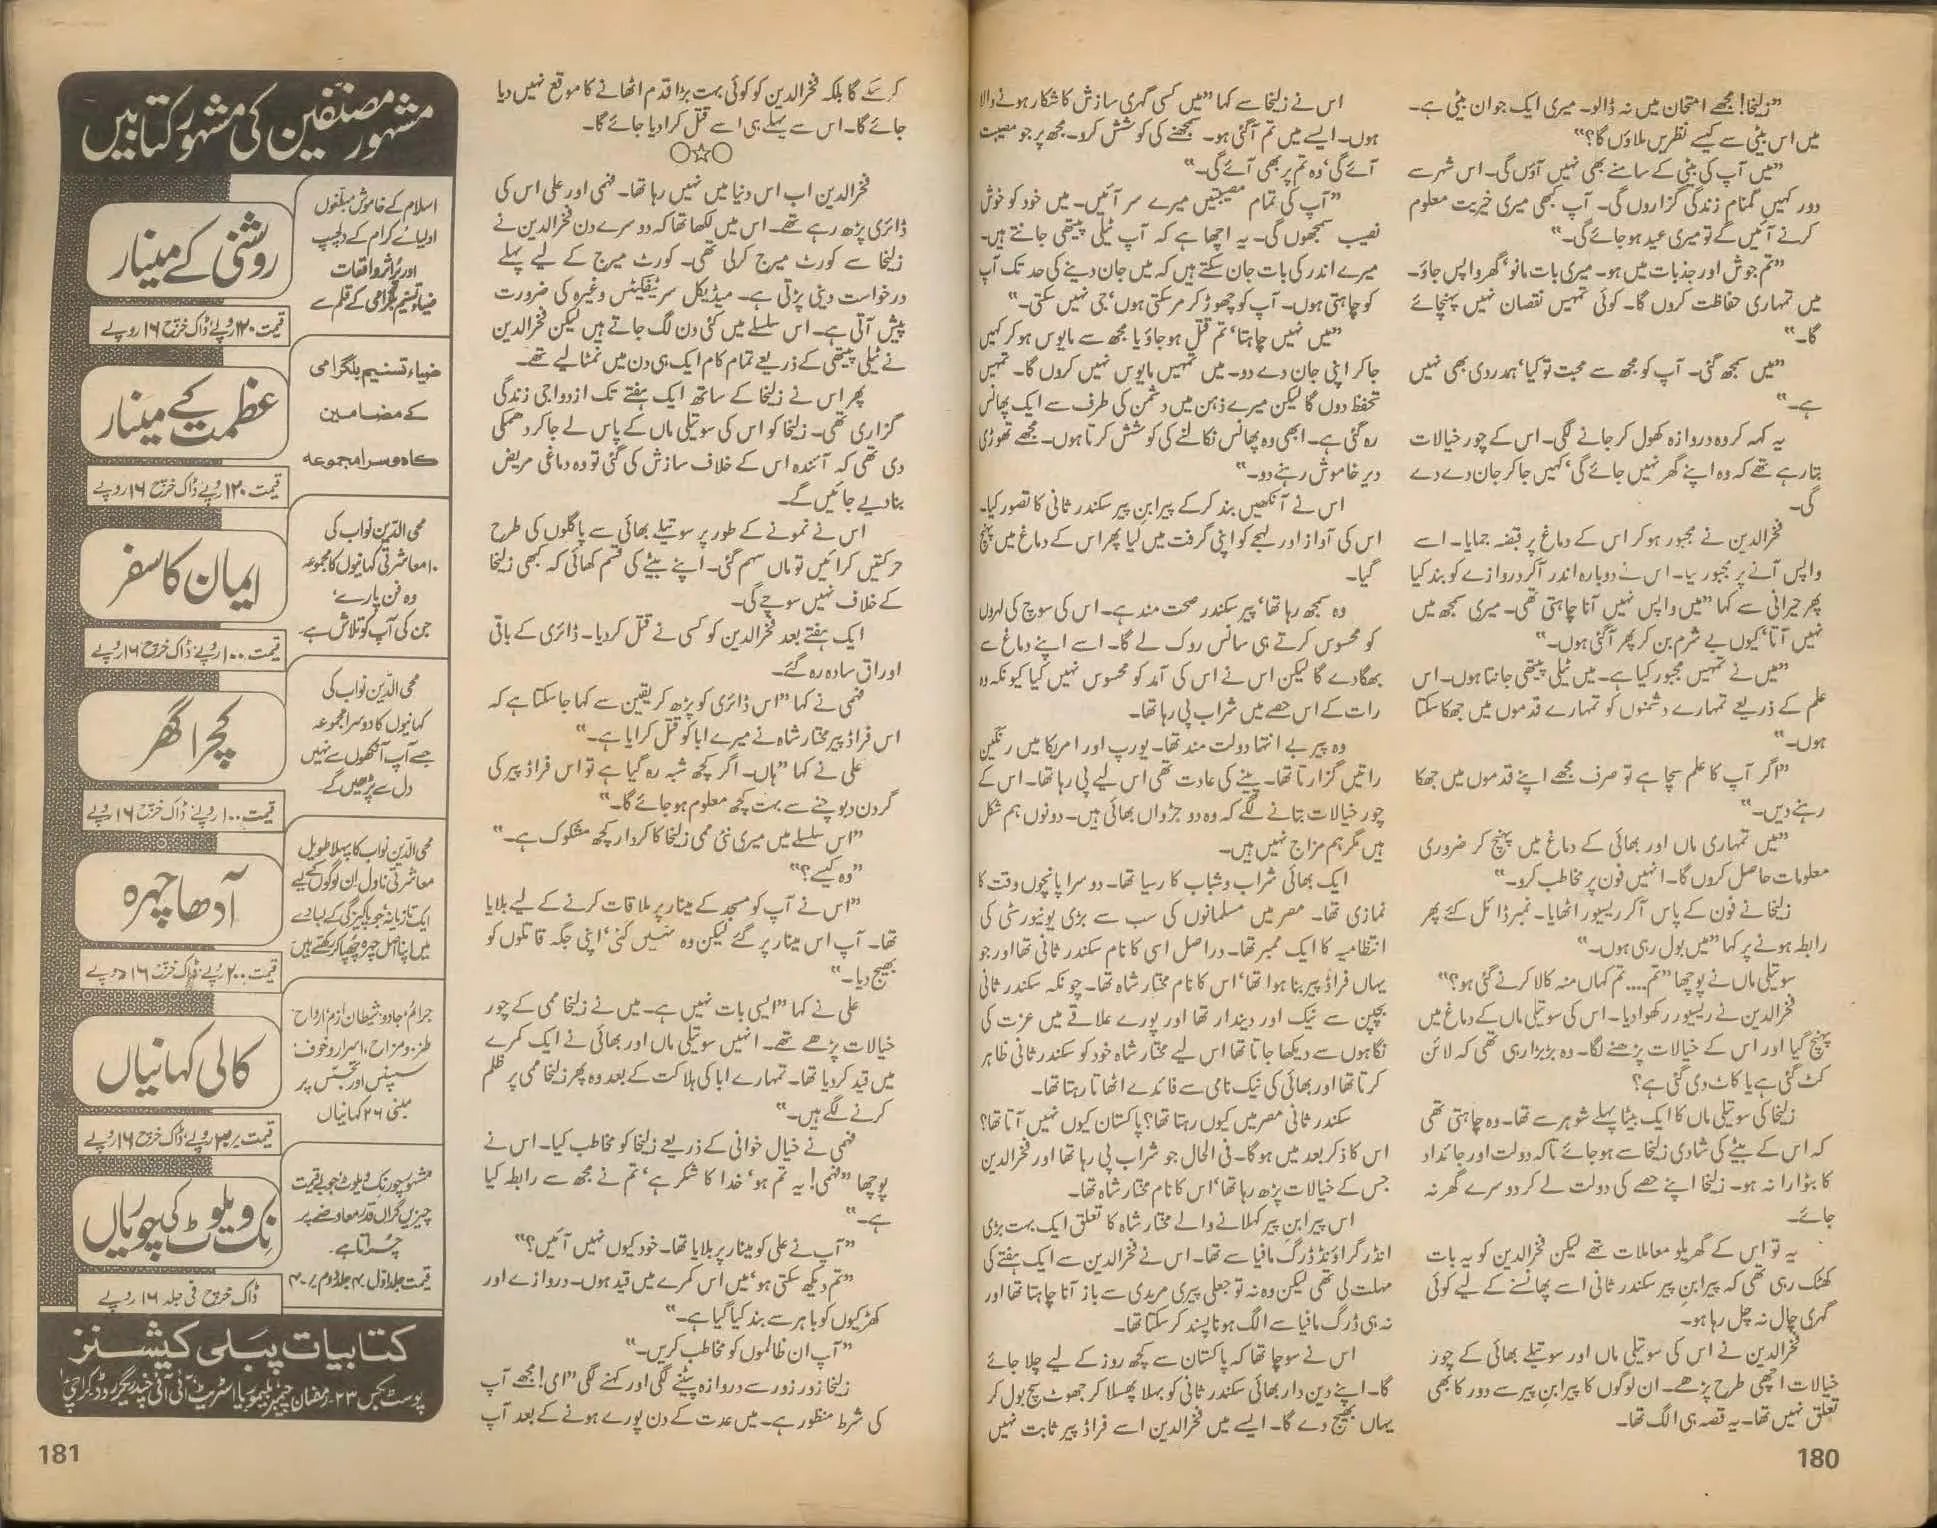 ”زلیخا! مجھے امتحان میں نہ ڈالو۔ میری ایک جوان بیٹی ہے۔
میں اس بیٹی سے کیسے نظریں ملاؤں گا؟“
”میں آپ کی بیٹی کے سامنے بھی نہیں آؤں گی۔ اس شہر سے
دور کہیں گمنام زندگی گزاروں گی۔ آپ کبھی میری خیریت معلوم
کرنے آئیں گے تو میری عید ہو جائے گی۔“
”تم جوش اور جذبات میں ہو۔ میری بات مانو‘ گھر واپس جاؤ۔
میں تمہاری حفاظت کروں گا۔ کوئی تمہیں نقصان نہیں پہنچائے
گا۔“
”میں سمجھ گئی۔ آپ کو مجھ سے محبت تو کیا‘ ہمدردی بھی نہیں
ہے۔“
یہ کہہ کر وہ دروازہ کھول کر جانے لگی۔ اس کے چور خیالات
بتا رہے تھے کہ وہ اپنے گھر نہیں جائے گی‘ کہیں جا کر جان دے دے
گی۔
فخرالدین نے مجبور ہو کر اس کے دماغ پر قبضہ جمایا۔ اسے
واپس آنے پر مجبور کیا۔ اس نے دوبارہ اندر آکر دروازے کو بند کیا
پھر حیرانی سے کہا ”میں واپس نہیں آنا چاہتی تھی۔ میری سمجھ میں
نہیں آتا‘ کیوں بے شرم بن کر پھر آگئی ہوں۔“
”میں نے تمہیں مجبور کیا ہے۔ میں ٹیلی پیتھی جانتا ہوں۔ اس
علم کے ذریعے تمہارے دشمنوں کو تمہارے قدموں میں جھکا سکتا
ہوں۔“
”اگر آپ کا علم سچا ہے تو صرف مجھے اپنے قدموں میں جھکا
رہنے دیں۔“
”میں تمہاری ماں اور بھائی کے دماغ میں پہنچ کر ضروری
معلومات حاصل کروں گا۔ انہیں فون پر مخاطب کرو۔“
زلیخا نے فون کے پاس آکر ریسیور اٹھایا۔ نمبر ڈائل کئے پھر
رابطہ ہونے پر کہا ”میں بول رہی ہوں۔“
سوتیلی ماں نے پوچھا ”تم.... تم کہاں منہ کالا کرنے گئی ہو؟“
فخرالدین نے ریسیور رکھوا دیا۔ اس کی سوتیلی ماں کے دماغ میں
پہنچ گیا اور اس کے خیالات پڑھنے لگا۔ وہ بڑبڑا رہی تھی کہ لائن
کٹ گئی ہے یا کاٹ دی گئی ہے؟
زلیخا کی سوتیلی ماں کا ایک بیٹا پہلے شوہر سے تھا۔ وہ چاہتی تھی
کہ اس کے بیٹے کی شادی زلیخا سے ہو جائے تاکہ دولت اور جائداد
کا بٹوارا نہ ہو۔ زلیخا اپنے حصے کی دولت لے کر دوسرے گھر نہ
جائے۔
یہ تو اس کے گھریلو معاملات تھے لیکن فخرالدین کو یہ بات
کھٹک رہی تھی کہ پیر ابنِ پیر سکندر ثانی اسے پھانسنے کے لیے کوئی
گہری چال نہ چل رہا ہو۔
فخرالدین نے اس کی سوتیلی ماں اور سوتیلے بھائی کے چور
خیالات اچھی طرح پڑھے۔ ان لوگوں کا پیر ابنِ پیر سے دور کا بھی
تعلق نہیں تھا۔ یہ قصہ ہی الگ تھا۔
180
اس نے زلیخا سے کہا ”میں کسی گہری سازش کا شکار ہونے والا
ہوں۔ ایسے میں تم آگئی ہو۔ سمجھنے کی کوشش کرو۔ مجھ پر جو مصیبت
آئے گی‘ وہ تم پر بھی آئے گی۔“
”آپ کی تمام مصیبتیں میرے سر آئیں۔ میں خود کو خوش
نصیب سمجھوں گی۔ یہ اچھا ہے کہ آپ ٹیلی پیتھی جانتے ہیں۔
میرے اندر کی بات جان سکتے ہیں کہ میں جان دینے کی حد تک آپ
کو چاہتی ہوں۔ آپ کو چھوڑ کر مر سکتی ہوں‘ جی نہیں سکتی۔“
”میں نہیں چاہتا‘ تم قتل ہو جاؤ یا مجھ سے مایوس ہو کر کہیں
جا کر اپنی جان دے دو۔ میں تمہیں مایوس نہیں کروں گا۔ تمہیں
تحفظ دوں گا لیکن میرے ذہن میں دشمن کی طرف سے ایک پھانس
رہ گئی ہے۔ ابھی وہ پھانس نکالنے کی کوشش کرتا ہوں۔ مجھے تھوڑی
دیر خاموش رہنے دو۔“
اس نے آنکھیں بند کرکے پیر ابنِ پیر سکندر ثانی کا تصور کیا۔
اس کی آواز اور لہجے کو اپنی گرفت میں لیا پھر اس کے دماغ میں پہنچ
گیا۔
وہ سمجھ رہا تھا‘ پیر سکندر صحت مند ہے۔ اس کی سوچ کی لہروں
کو محسوس کرتے ہی سانس روک لے گا۔ اسے اپنے دماغ سے
بھگا دے گا لیکن اس نے اس کی آمد کو محسوس نہیں کیا کیونکہ وہ
رات کے اس حصے میں شراب پی رہا تھا۔
وہ پیر بے انتہا دولت مند تھا۔ یورپ اور امریکا میں رنگین
راتیں گزارتا تھا۔ پینے کی عادت تھی اس لیے پی رہا تھا۔ اس کے
چور خیالات بتانے لگے کہ وہ دو جڑواں بھائی ہیں۔ دونوں ہم شکل
ہیں مگر ہم مزاج نہیں ہیں۔
ایک بھائی شراب و شباب کا رسیا تھا۔ دوسرا پانچوں وقت کا
نمازی تھا۔ مصر میں مسلمانوں کی سب سے بڑی یونیورسٹی کی
انتظامیہ کا ایک ممبر تھا۔ دراصل اسی کا نام سکندر ثانی تھا اور جو
یہاں فراڈ پیر بنا ہوا تھا‘ اس کا نام مختار شاہ تھا۔ چونکہ سکندر ثانی
بچپن سے نیک اور دیندار تھا اور پورے علاقے میں عزت کی
نگاہوں سے دیکھا جاتا تھا اس لیے مختار شاہ خود کو سکندر ثانی ظاہر
کرتا تھا اور بھائی کی نیک نامی سے فائدے اٹھاتا رہتا تھا۔
سکندر ثانی مصر میں کیوں رہتا تھا؟ پاکستان کیوں نہیں آتا تھا؟
اس کا ذکر بعد میں ہوگا۔ فی الحال جو شراب پی رہا تھا اور فخرالدین
جس کے خیالات پڑھ رہا تھا‘ اس کا نام مختار شاہ تھا۔
اس پیر ابنِ پیر کہلانے والے مختار شاہ کا تعلق ایک بہت بڑی
انڈر گراؤنڈ ڈرگ مافیا سے تھا۔ اس نے فخرالدین سے ایک ہفتے کی
مہلت لی تھی لیکن وہ نہ تو جعلی پیری مریدی سے باز آنا چاہتا تھا اور
نہ ہی ڈرگ مافیا سے الگ ہونا پسند کر سکتا تھا۔
اس نے سوچا تھا کہ پاکستان سے کچھ روز کے لیے چلا جائے
گا۔ اپنے دین دار بھائی سکندر ثانی کو بہلا پھسلا کر جھوٹ سچ بول کر
یہاں بھیج دے گا۔ ایسے میں فخرالدین اسے فراڈ پیر ثابت نہیں
کر سکے گا بلکہ فخرالدین کو کوئی بہت بڑا قدم اٹھانے کا موقع نہیں دیا
جائے گا۔ اس سے پہلے ہی اسے قتل کرا دیا جائے گا۔
○☆○
فخرالدین اب اس دنیا میں نہیں رہا تھا۔ فہمی اور علی اس کی
ڈائری پڑھ رہے تھے۔ اس میں لکھا تھا کہ دوسرے دن فخرالدین نے
زلیخا سے کورٹ میرج کرلی تھی۔ کورٹ میرج کے لیے پہلے
درخواست دینی پڑتی ہے۔ میڈیکل سرٹیفکیٹس وغیرہ کی ضرورت
پیش آتی ہے۔ اس سلسلے میں کئی دن لگ جاتے ہیں لیکن فخرالدین
نے ٹیلی پیتھی کے ذریعے تمام کام ایک ہی دن میں نمٹا لیے تھے۔
پھر اس نے زلیخا کے ساتھ ایک ہفتے تک ازدواجی زندگی
گزاری تھی۔ زلیخا کو اس کی سوتیلی ماں کے پاس لے جا کر دھمکی
دی تھی کہ آئندہ اس کے خلاف سازش کی گئی تو وہ دماغی مریض
بنا دیے جائیں گے۔
اس نے نمونے کے طور پر سوتیلے بھائی سے پاگلوں کی طرح
حرکتیں کرائیں تو ماں سہم گئی۔ اپنے بیٹے کی قسم کھائی کہ کبھی زلیخا
کے خلاف نہیں سوچے گی۔
ایک ہفتے بعد فخرالدین کو کسی نے قتل کردیا۔ ڈائری کے باقی
اوراق سادہ رہ گئے۔
فہمی نے کہا ”اس ڈائری کو پڑھ کر یقین سے کہا جاسکتا ہے کہ
اس فراڈ پیر مختار شاہ نے میرے ابا کو قتل کرایا ہے۔“
علی نے کہا ”ہاں۔ اگر کچھ شبہ رہ گیا ہے تو اس فراڈ پیر کی
گردن دبوچنے سے بہت کچھ معلوم ہو جائے گا۔“
”اس سلسلے میں میری نئی ممی زلیخا کا کردار کچھ مشکوک ہے۔“
”وہ کیسے؟“
”اس نے آپ کو مسجد کے مینار پر ملاقات کرنے کے لیے بلایا
تھا۔ آپ اس مینار پر گئے لیکن وہ نہیں گئی‘ اپنی جگہ قاتلوں کو
بھیج دیا۔“
علی نے کہا ”ایسی بات نہیں ہے۔ میں نے زلیخا ممی کے چور
خیالات پڑھے تھے۔ انہیں سوتیلی ماں اور بھائی نے ایک کمرے
میں قید کردیا تھا۔ تمہارے ابا کی ہلاکت کے بعد وہ پھر زلیخا ممی پر ظلم
کرنے لگے ہیں۔“
فہمی نے خیال خوانی کے ذریعے زلیخا کو مخاطب کیا۔ اس نے
پوچھا ”فہمی! یہ تم ہو‘ خدا کا شکر ہے‘ تم نے مجھ سے رابطہ کیا
ہے۔“
”آپ نے علی کو مینار پر بلایا تھا۔ خود کیوں نہیں آئیں؟“
”تم دیکھ سکتی ہو‘ میں اس کمرے میں قید ہوں۔ دروازے اور
کھڑکیوں کو باہر سے بند کیا گیا ہے۔“
”آپ ان ظالموں کو مخاطب کریں۔“
زلیخا زور زور سے دروازہ پیٹنے لگی اور کہنے لگی ”امی! مجھے آپ
کی شرط منظور ہے۔ میں عدت کے دن پورے ہونے کے بعد آپ
مشہور مصنفین کی مشہور کتابیں
اسلام کے خاموش مبلغوں
اولیائے کرام کے دلچسپ
اور پُراثر واقعات
ضیاء تسنیم بلگرامی کے قلم سے
روشنی کے مینار
قیمت ۱۲۰ روپے ڈاک خرچ ۱۶ روپے
ضیاء تسنیم بلگرامی
کے مضامین
کا دوسرا مجموعہ
عظمت کے مینار
قیمت ۱۲۰ روپے ڈاک خرچ ۱۶ روپے
محی الدین نواب کی
۱۰ معاشرتی کہانیوں کا مجموعہ
وہ فن پارے،
جن کی آپ کو تلاش ہے۔
ایمان کا سفر
قیمت ۱۰۰ روپے ڈاک خرچ ۱۶ روپے
محی الدین نواب کی
کہانیوں کا دوسرا مجموعہ
جسے آپ آنکھوں سے نہیں
دل سے پڑھیں گے۔
کچرا گھر
قیمت ۱۰۰ روپے ڈاک خرچ ۱۶ روپے
محی الدین نواب کا پہلا طویل
معاشرتی ناول۔ ان لوگوں کیلیے
ایک تازیانہ، جو پاکیزگی کے لبادے
میں اپنا اصل چہرہ چھپا کر رکھتے ہیں
آدھا چہرہ
قیمت ۲۰۰ روپے ڈاک خرچ ۱۶ روپے
جرائم، جادو، شیطان ازم، ارواح،
طنز و مزاح، اسرار و خوف،
سسپنس اور تجسّس پر
مبنی ۲۶ کہانیاں
کالی کہانیاں
قیمت روپے ڈاک خرچ ۱۶ روپے
مشہور چور نک ویلوٹ، جو بے قیمت
چیزیں گراں قدر معاوضے پر
چُراتا ہے۔
نک ویلوٹ کی چوریاں
قیمت جلد اول ۴۰، جلد دوم ۴۰
ڈاک خرچ فی جلد ۱۶ روپے
کتابیات پبلی کیشنز
پوسٹ بکس ۲۳ رمضان چیمبرز بلیموریا اسٹریٹ آئی آئی چندریگر روڈ کراچی
181